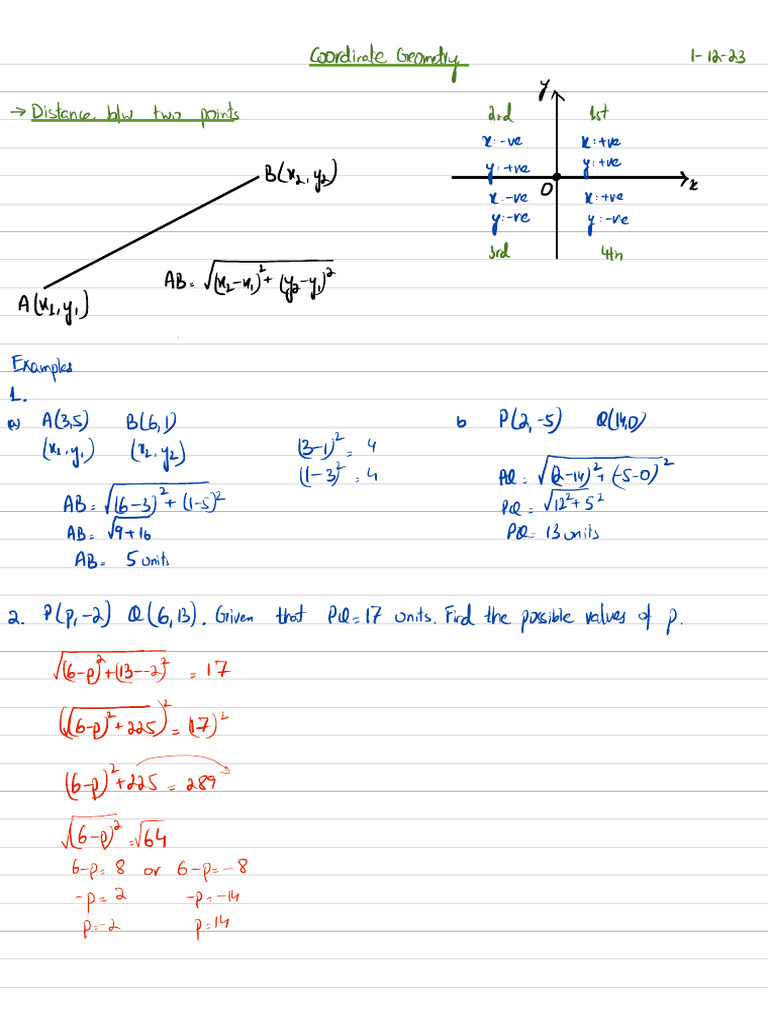 Coordinate Geometry
1-12-23
→ Distance b/w two points
B(x₂, y₂)
A(x₁, y₁)
AB = √((x₂-x₁)² + (y₂-y₁)²)
y
2nd 1st
x:-ve x:+ve
y:+ve y:+ve
O x
x:-ve x:+ve
y:-ve y:-ve
3rd 4th
Examples
1.
a) A(3,5) B(6,1)
(x₁, y₁) (x₂, y₂)
AB = √((6-3)² + (1-5)²)
AB = √(9+16)
AB = 5 units
(3-1)² = 4
(1-3)² = 4
b P(2,-5) Q(14,0)
PQ = √((2-14)² + (-5-0)²)
PQ = √(12² + 5²)
PQ = 13 units
2. P(p,-2) Q(6,13). Given that PQ = 17 units. Find the possible values of p.
√((6-p)² + (13--2)²) = 17
(√((6-p)² + 225))² = (17)²
(6-p)² + 225 = 289
√((6-p)²) = √64
6-p = 8 or 6-p = -8
-p = 2 -p = -14
p = -2 p = 14